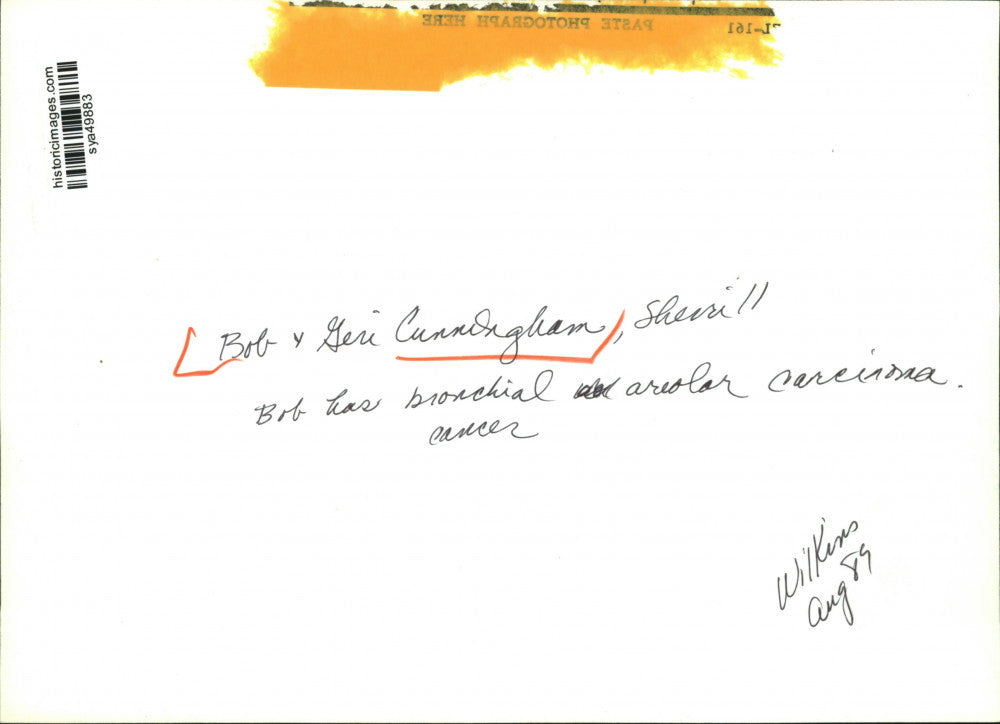 PASTE PHOTOGRAPH HERE
PL-161
historicimages.com
sya49883
Bob & Geri Cunningham, Sherrill
Bob has bronchial areolar carcinoma.
cancer
Wilkins
Aug 89